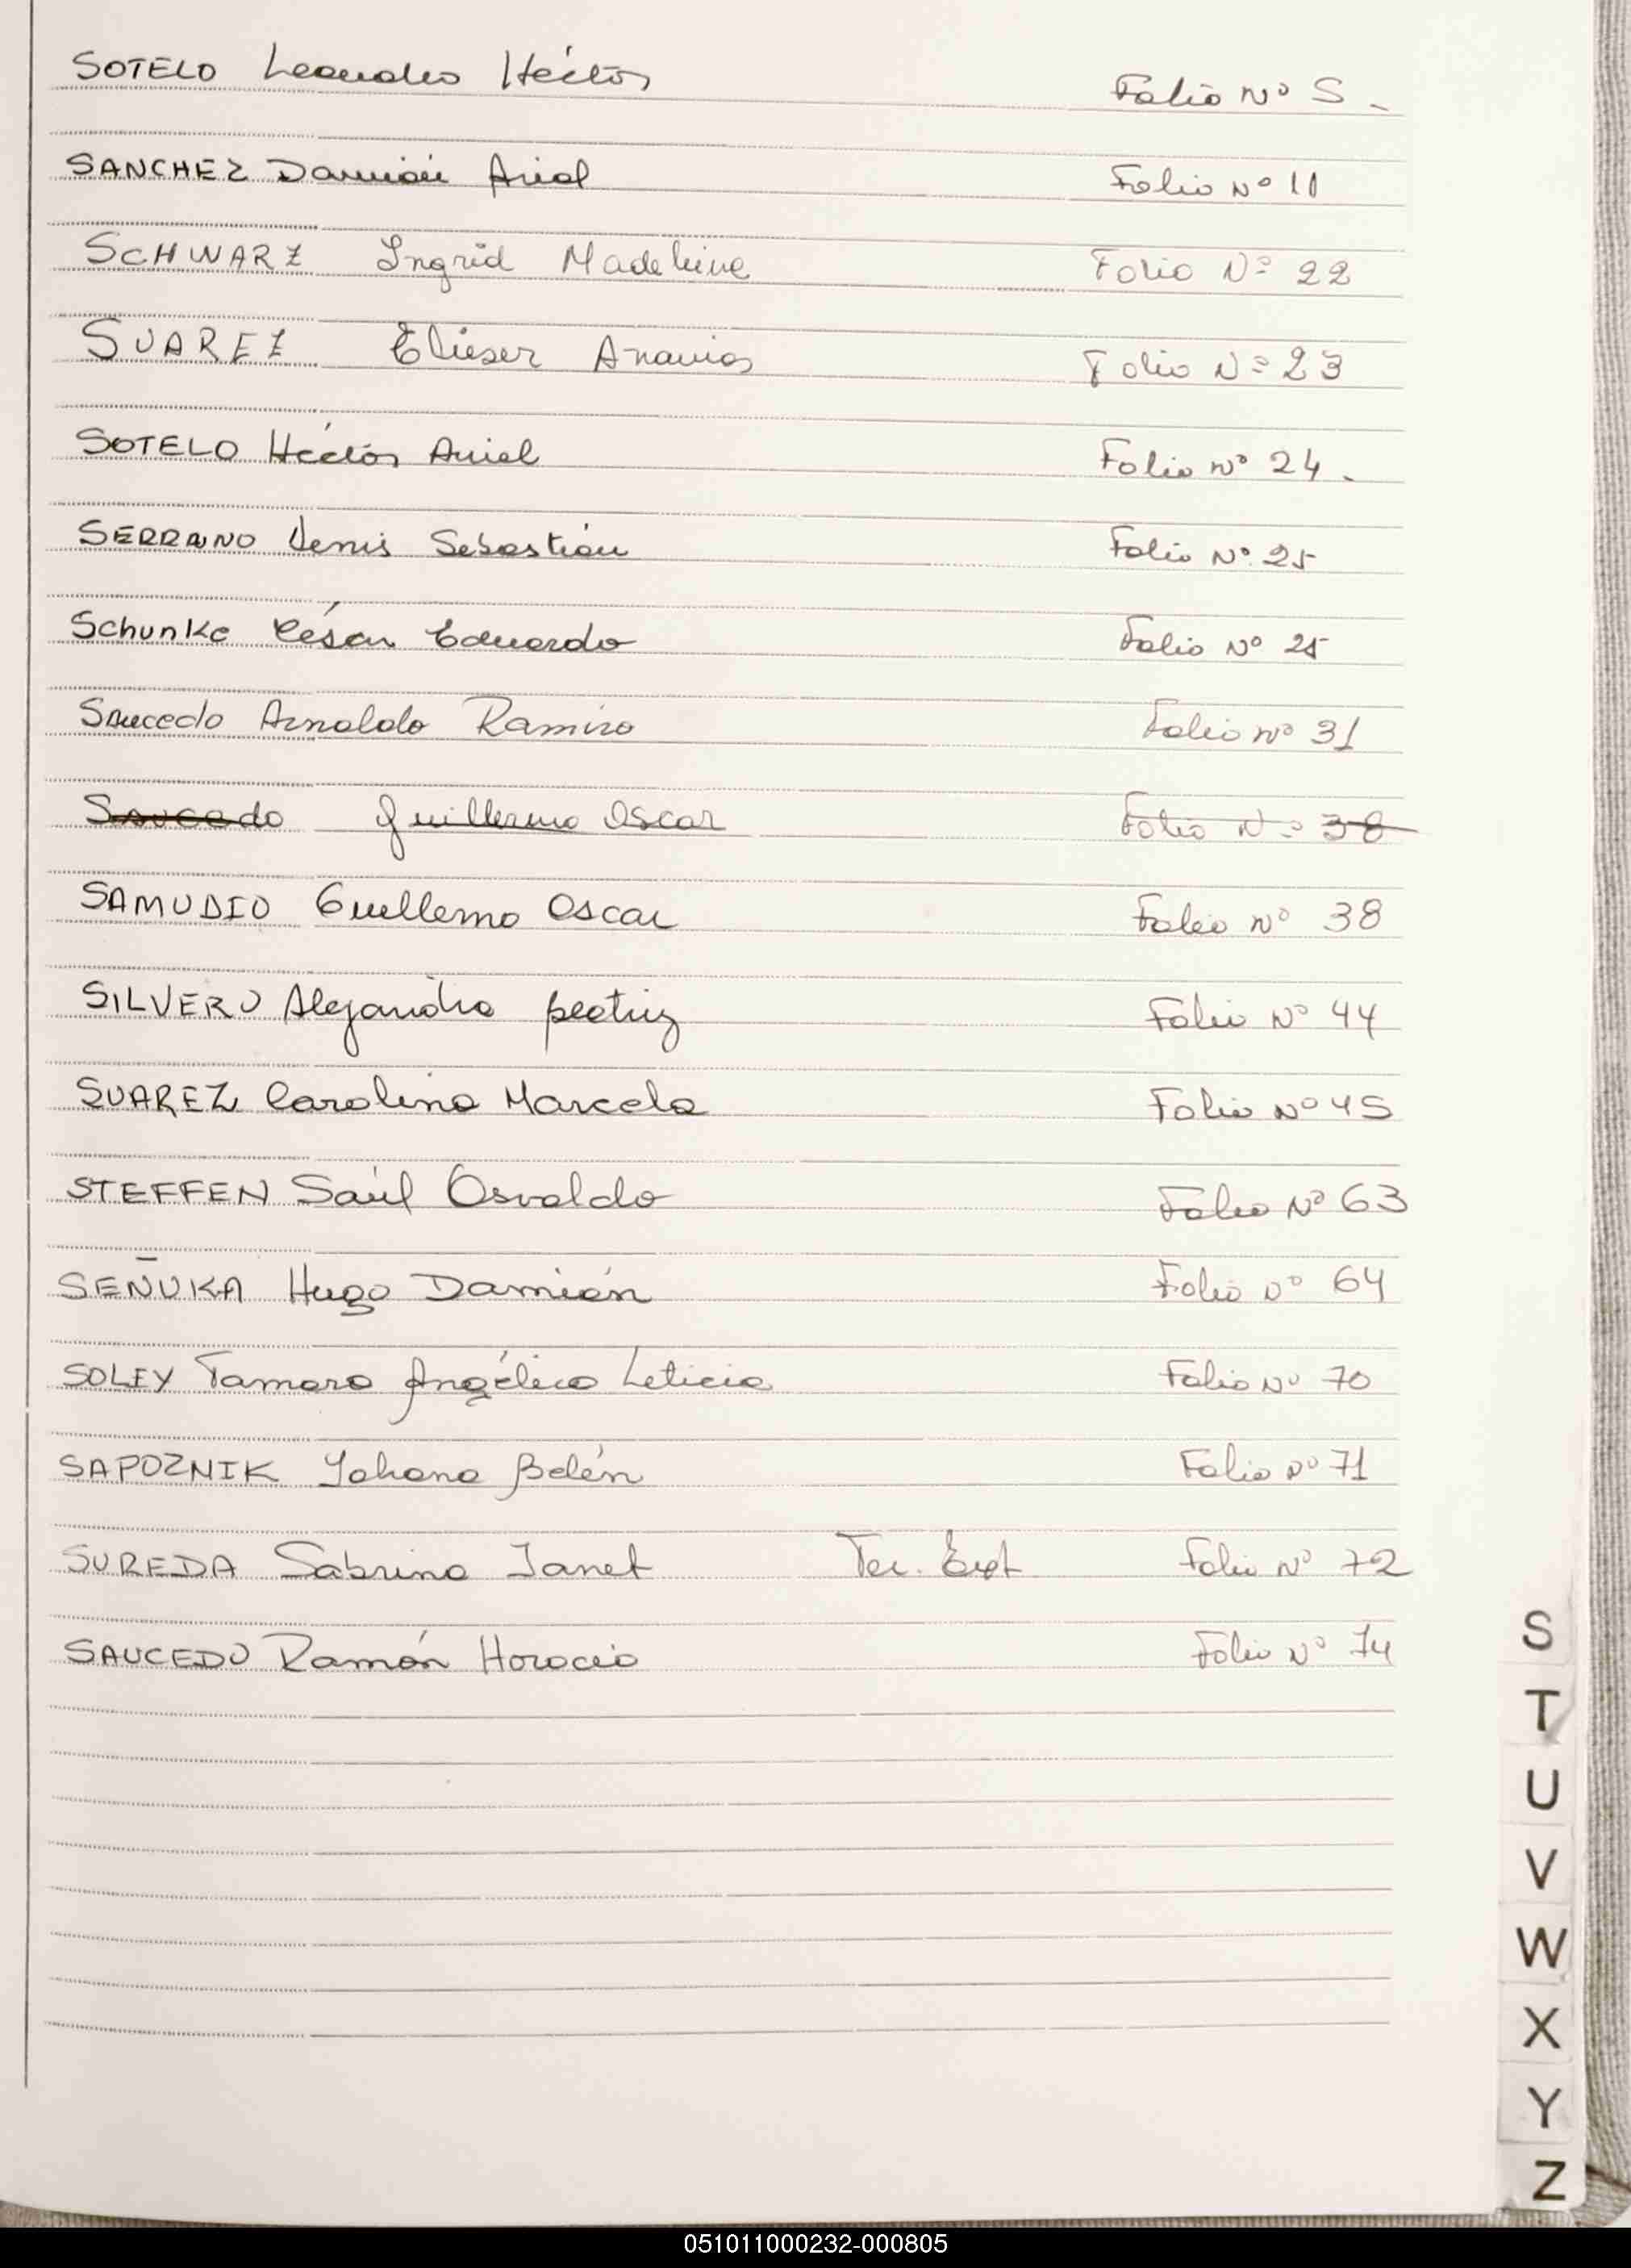 SOTELO Leandro Héctor Folio Nº 5.
SANCHEZ Damián Ariel Folio Nº 11
SCHWARZ Ingrid Madeleine Folio Nº 22
SUAREZ Elieser Ananias Folio Nº 23
SOTELO Héctor Ariel Folio Nº 24.
SERRANO Denis Sebastián Folio Nº 25
Schunke César Eduardo Folio Nº 25
Saucedo Arnaldo Ramiro Folio Nº 31
Saucedo Guillermo Oscar Folio Nº 38
SAMUDIO Guillermo Oscar Folio Nº 38
SILVERO Alejandra Beatriz Folio Nº 44
SUAREZ Carolina Marcela Folio Nº 45
STEFFEN Saúl Osvaldo Folio Nº 63
SEÑUKA Hugo Damián Folio Nº 64
SOLEY Tamara Angélica Leticia Folio Nº 70
SAPOZNIK Yohana Belén Folio Nº 71
SUREDA Sabrina Janet Ter. Folio Nº 72
SAUCEDO Ramón Horacio Folio Nº 74
S
T
U
V
W
X
Y
Z
051011000232-000805